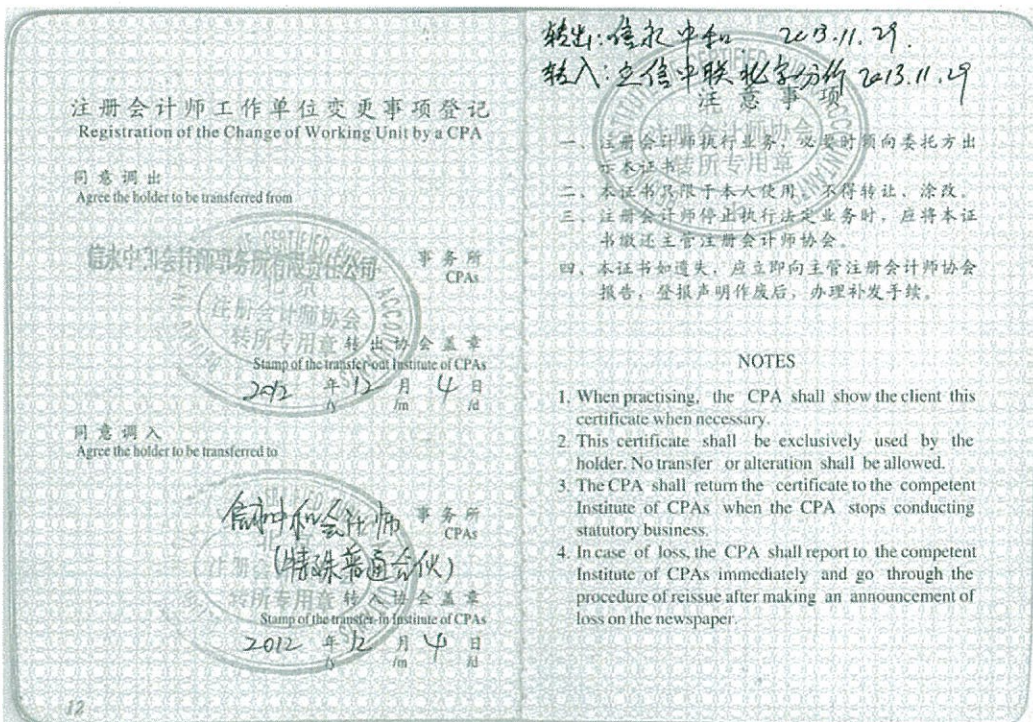 注册会计师工作单位变更事项登记
Registration of the Change of Working Unit by a CPA
同意调出
Agree the holder to be transferred from
信永中和会计师事务所有限责任公司 事务所
CPAs
北京
注册会计师协会
转所专用章
转出协会盖章
Stamp of the transfer-out Institute of CPAs
2012 年 12 月 4 日
/y /m /d
同意调入
Agree the holder to be transferred to
信永中和会计师 事务所
CPAs
(特殊普通合伙)
转所专用章
转入协会盖章
Stamp of the transfer-in Institute of CPAs
2012 年 12 月 4 日
/y /m /d
12
转出:信永中和 2013.11.29.
转入:立信中联 2013.11.29
注意事项
注册会计师协会
转所专用章
一、注册会计师执行业务,必要时须向委托方出
示本证书。
二、本证书只限于本人使用,不得转让、涂改。
三、注册会计师停止执行法定业务时,应将本证
书缴还主管注册会计师协会。
四、本证书如遗失,应立即向主管注册会计师协会
报告,登报声明作废后,办理补发手续。
NOTES
1. When practising, the CPA shall show the client this
certificate when necessary.
2. This certificate shall be exclusively used by the
holder. No transfer or alteration shall be allowed.
3. The CPA shall return the certificate to the competent
Institute of CPAs when the CPA stops conducting
statutory business.
4. In case of loss, the CPA shall report to the competent
Institute of CPAs immediately and go through the
procedure of reissue after making an announcement of
loss on the newspaper.